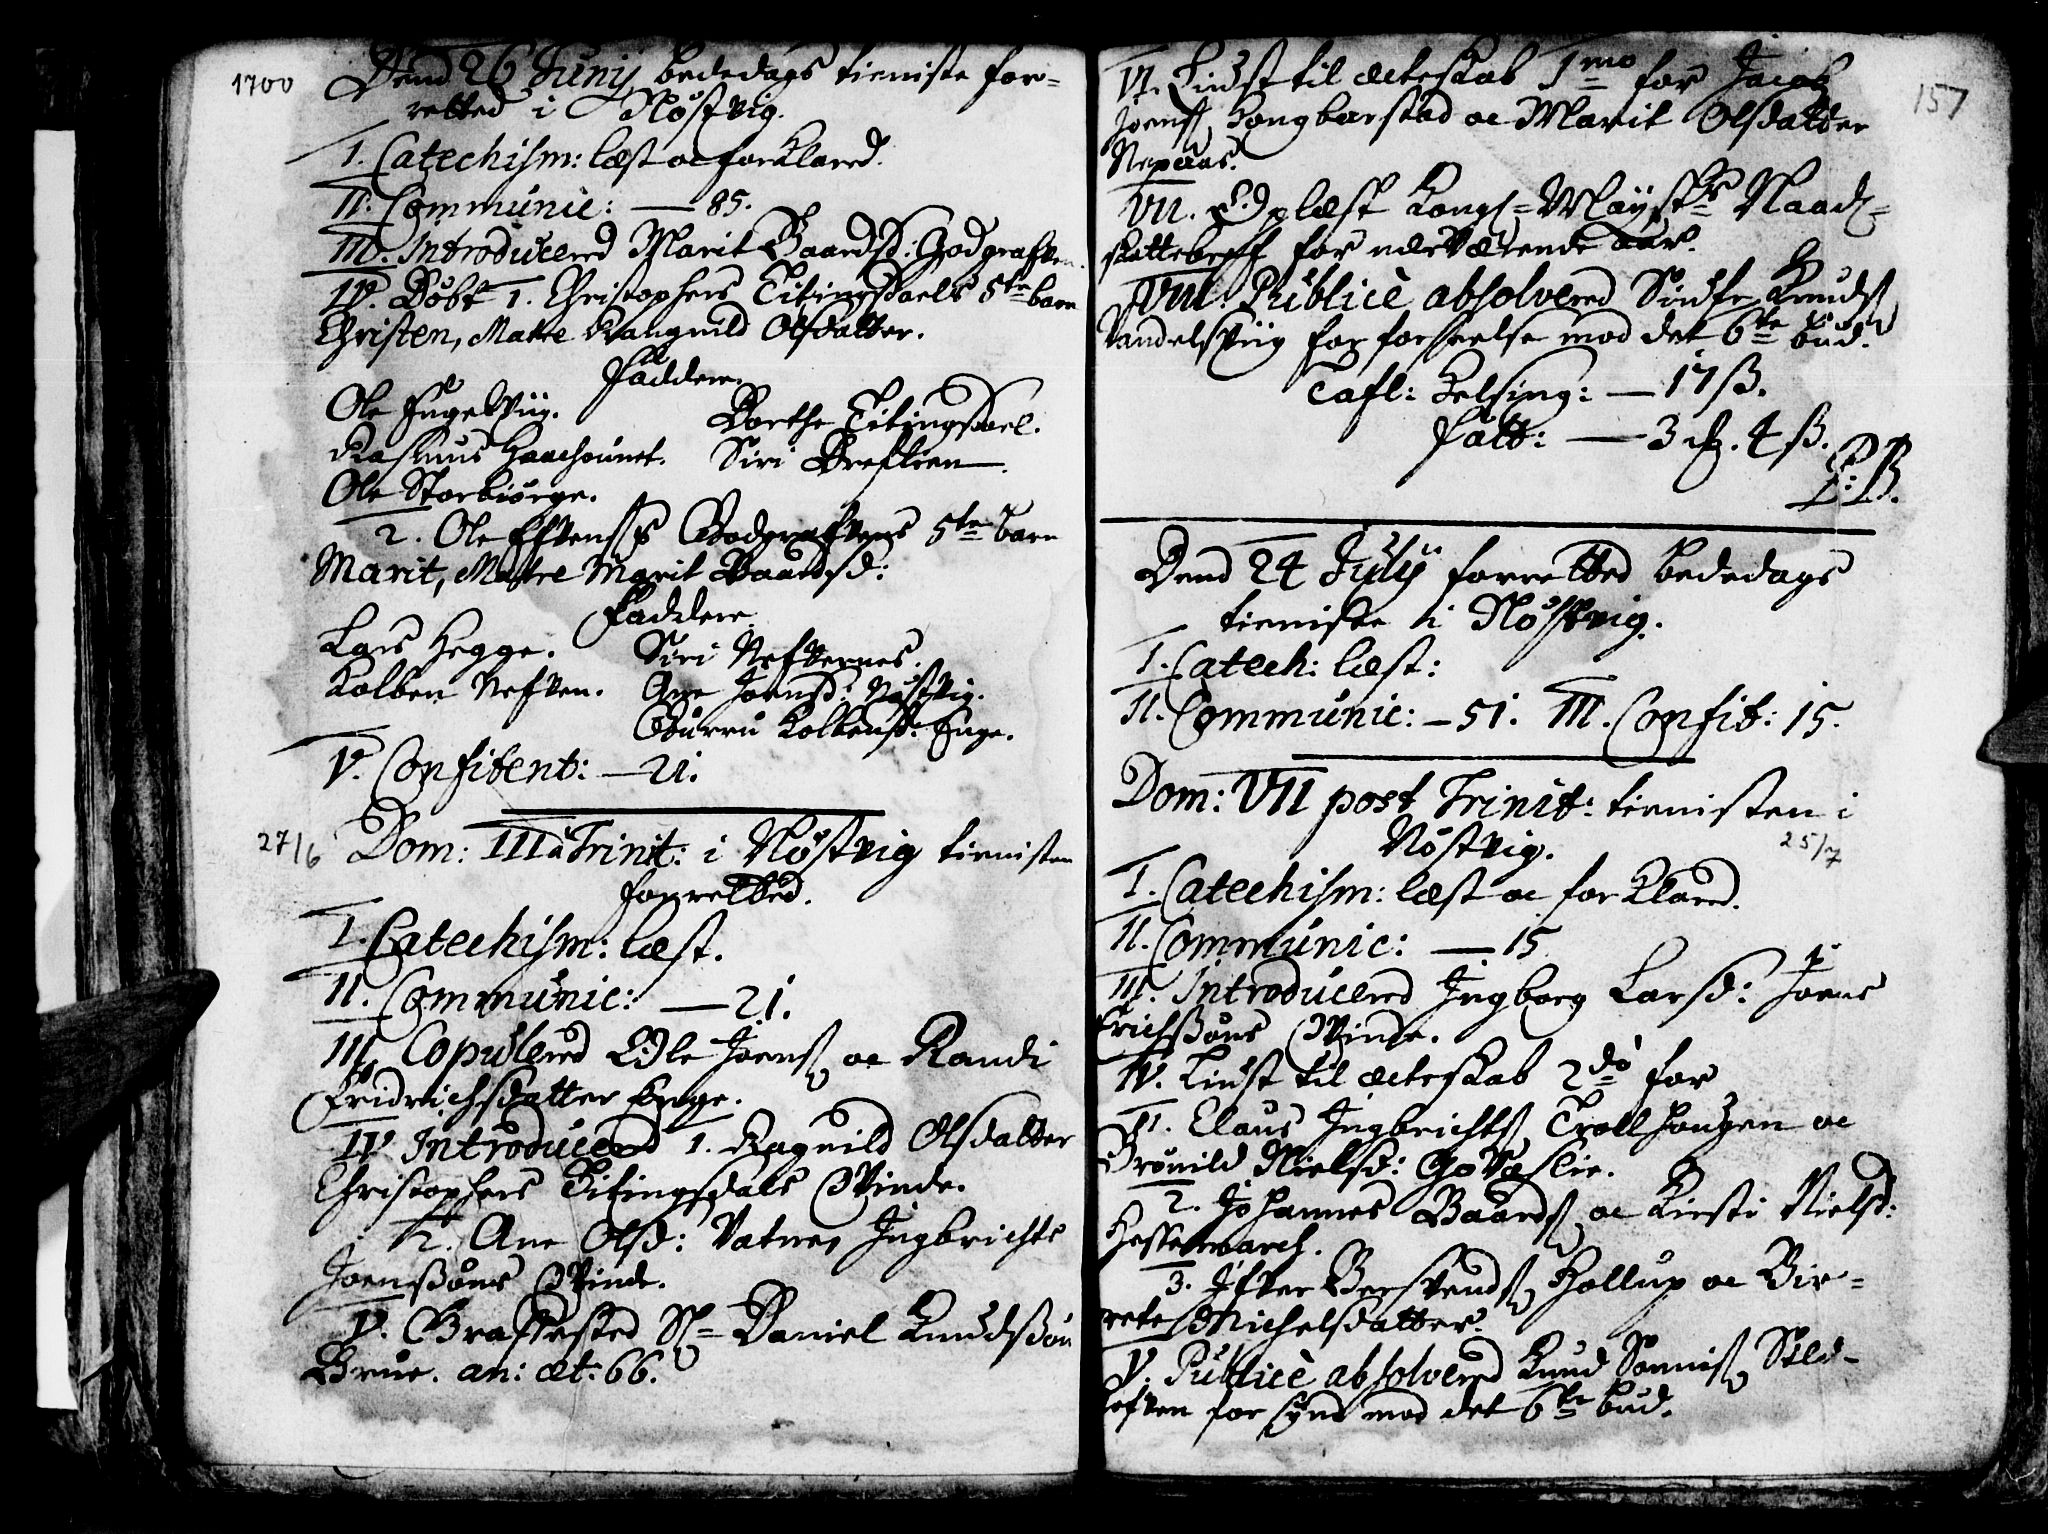 1700
Dend 26 Junij bededags tieniste for-
retted i Nöstvig.
I. Catechism: læst oc forklared.
II. Communic: — 85.
III. Introducered Marit Baardsd: Godgraften.
IV. Döbt 1. Christophers Titingsdaels 5te barn
Christen, Matre Rangnild Olsdatter.
Faddere.
Ole Fugelviig. Dorthe Titingsdael.
Rasmus
Siri
Ole Storbiörge.
2. Ole Godgraftens 5te barn
Marit, Matre Marit Baardsd:
Faddere.
Lars Hegge. Siri
Kolben Refken. Ane Joensd: Nöstvig.
Gurru Kolbensd: Enge.
V. Confitent: — 21.
27/6
Dom: III a Trinit: i Nöstvig tienisten
forretted.
I. Catechism: læst.
II. Communic: — 21.
III. Copulered Ole Joenss oc Randi
Fridrichsdatter Enge.
IV Introducered 1. Ragnild Olsdatter
Christophers Titingsdals Qvinde.
2. Ane Olsd: Vatne, Ingbrichts
Joenssöns Qvinde.
V. Graffested Sl= Daniel Knudssön
Brue. an: æt: 66.
157
VI. Liust til ecteskab 1mo for Jacob
Joenss Hongbarstad oc Marit Olsdatter
Nepaas.
VII. Oplæst Kongl= Mayst=
for nærværende aar.
VIII. Publicè absolvered Siufr Knudss
Vandelsviig for forseelse mod det 6te bud.
Tafl: Helsing: — 17 ß.
Fatt: — 3 4 ß.
Dend 24 Julij forretted bededags
tieniste i Nöstvig.
I. Catech: læst:
II. Communic: — 51. III. Confit: 15.
Dom: VII post Trinit: tienisten i
Nöstvig.
25/7
I. Catechism: læst oc forklared.
II. Communic: — 15
III. Introducered Ingborg Larsd: Joens
Erichssöns Qvinde.
IV. Liust til ecteskab 2do for
1. Claus Ingbrichts Trollhougen oc
Brönild Nielsd: Godvaslie.
2. Johannes Baards oc Kirsti Nielsd:
Hestemarch.
3. Ifver Bersvends Hollup oc Bir-
rete Michelsdatter.
V. Publicè absolvered Knud Sild-
for synd mod det 6te bud.